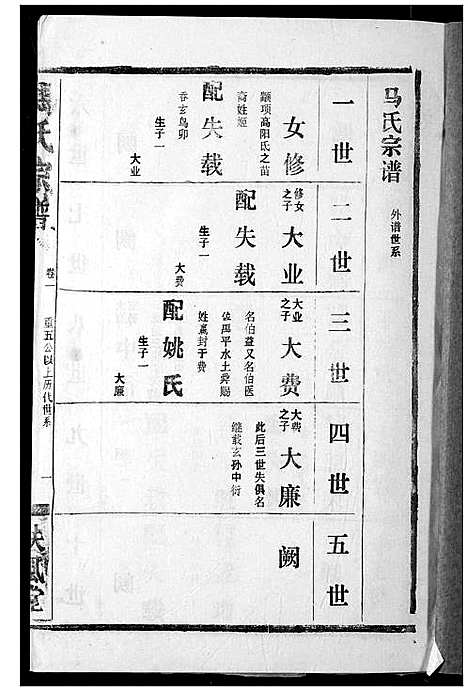 马氏宗谱
外谱世系
一世
女修
颛顼高阳氏之苗
裔姓姬
配失载
吞玄鸟卵
生子一
大业
二世
女修
之子
大业
配失载
生子一
大费
三世
大业
之子
大费
名伯益又名伯医
佐禹平水土舜赐
姓嬴封于费
配姚氏
生子一
大廉
四世
大费
之子
大廉
此后三世失俱名
继载玄孙中衍
五世
阙
氏宗谱
卷一
重五公以上历代世系
一
扶风堂